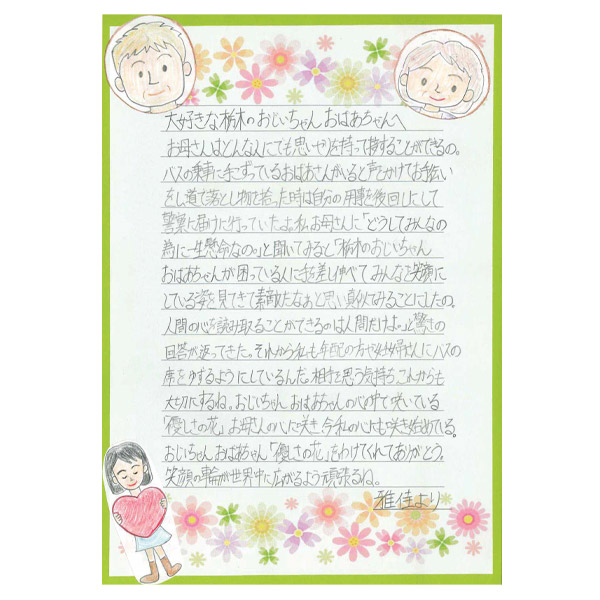 大好きな栃木のおじいちゃん おばあちゃんへ
お母さんはどんな人にでも思いやりを持って接することができるの。
バスの乗車に手こずっているおばあさんがいると声をかけてお手伝い
をし道で落とし物を拾った時は自分の用事を後回しにして
警察に届けに行っていたよ。私お母さんに「どうしてみんなの
為に一生懸命なの。」と聞いてみると「栃木のおじいちゃん
おばあちゃんが困っている人に手を差し伸べてみんなを笑顔に
している姿を見てきて素敵だなぁと思い真似てみることにしたの。
人間の心を読み取ることができるのは人間だけよ。」と驚きの
回答が返ってきた。それから私も年配の方や妊婦さんにバスの
席をゆずるようにしているんだ。相手を思う気持ちこれからも
大切にするね。おじいちゃん おばあちゃんの心の中で咲いている
「優しさの花」お母さんの心に咲き今私の心にも咲き始めている。
おじいちゃん おばあちゃん「優しさの花」をわけてくれてありがとう。
笑顔の輪が世界中に広がるよう頑張るね。
雅佳より